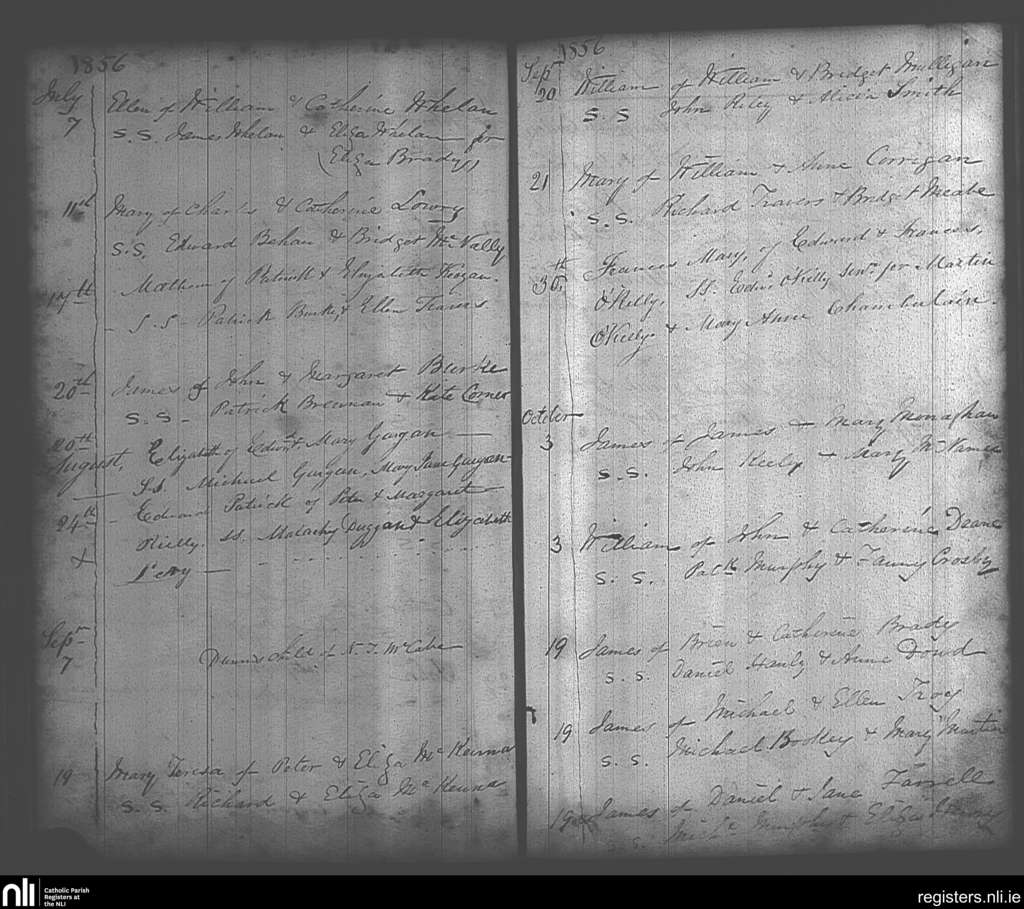 1856
July
7
Ellen of William & Catherine Whelan
S. S. James Whelan & Eliza Whelan for
(Eliza Brady)
11th Mary of Charles & Catherine Lowry
S. S. Edward Behan & Bridget McNally
17th Mathew of Patrick & Elizabeth Keegan
S. S - Patrick Burke & Ellen Travers
20th James of John & Margaret Burke
S. S - Patrick Brennan & Kate Comer
20th
August. Elizabeth of Edwd & Mary Gurgan
SS. Michael Gurgan, Mary Jane Gurgan
24th - Edward Patrick of Peter & Margaret
Rielly. SS. Malachy Duggan & Elizabeth
Sepr
7
child of N. T. McCabe
19 Mary Teresa of Peter & Eliza McKenna
S. S. Richard & Eliza McKenna
1856
Sepr
20 William of William & Bridget Mulligan
S. S John Riley & Alicia Smith
21 Mary of William & Anne Corrigan
S. S. Richard Travers & Bridget Meade
30th Frances Mary, of Edward & Frances,
O'Rielly, SS. Edwd O'Rielly Senr for Martin
O'Rielly. & Mary Anne Chamberlain.
October
3 James of James & Mary Monaghan
S. S. John Keely & Mary McNamee
3 William of John & Catherine Deane
S. S. Patk Murphy & Fanny Crosby
19 James of Brien & Catherine Brady
S. S. Daniel Hanly & Anne Dowd
19 James of Michael & Ellen Troy
S. S. Michael Bodley & Mary Martin
19 James of Daniel & Jane Farrell
S. S. Michl Murphy & Eliza
nli
Catholic Parish
Registers at
the NLI
registers.nli.ie